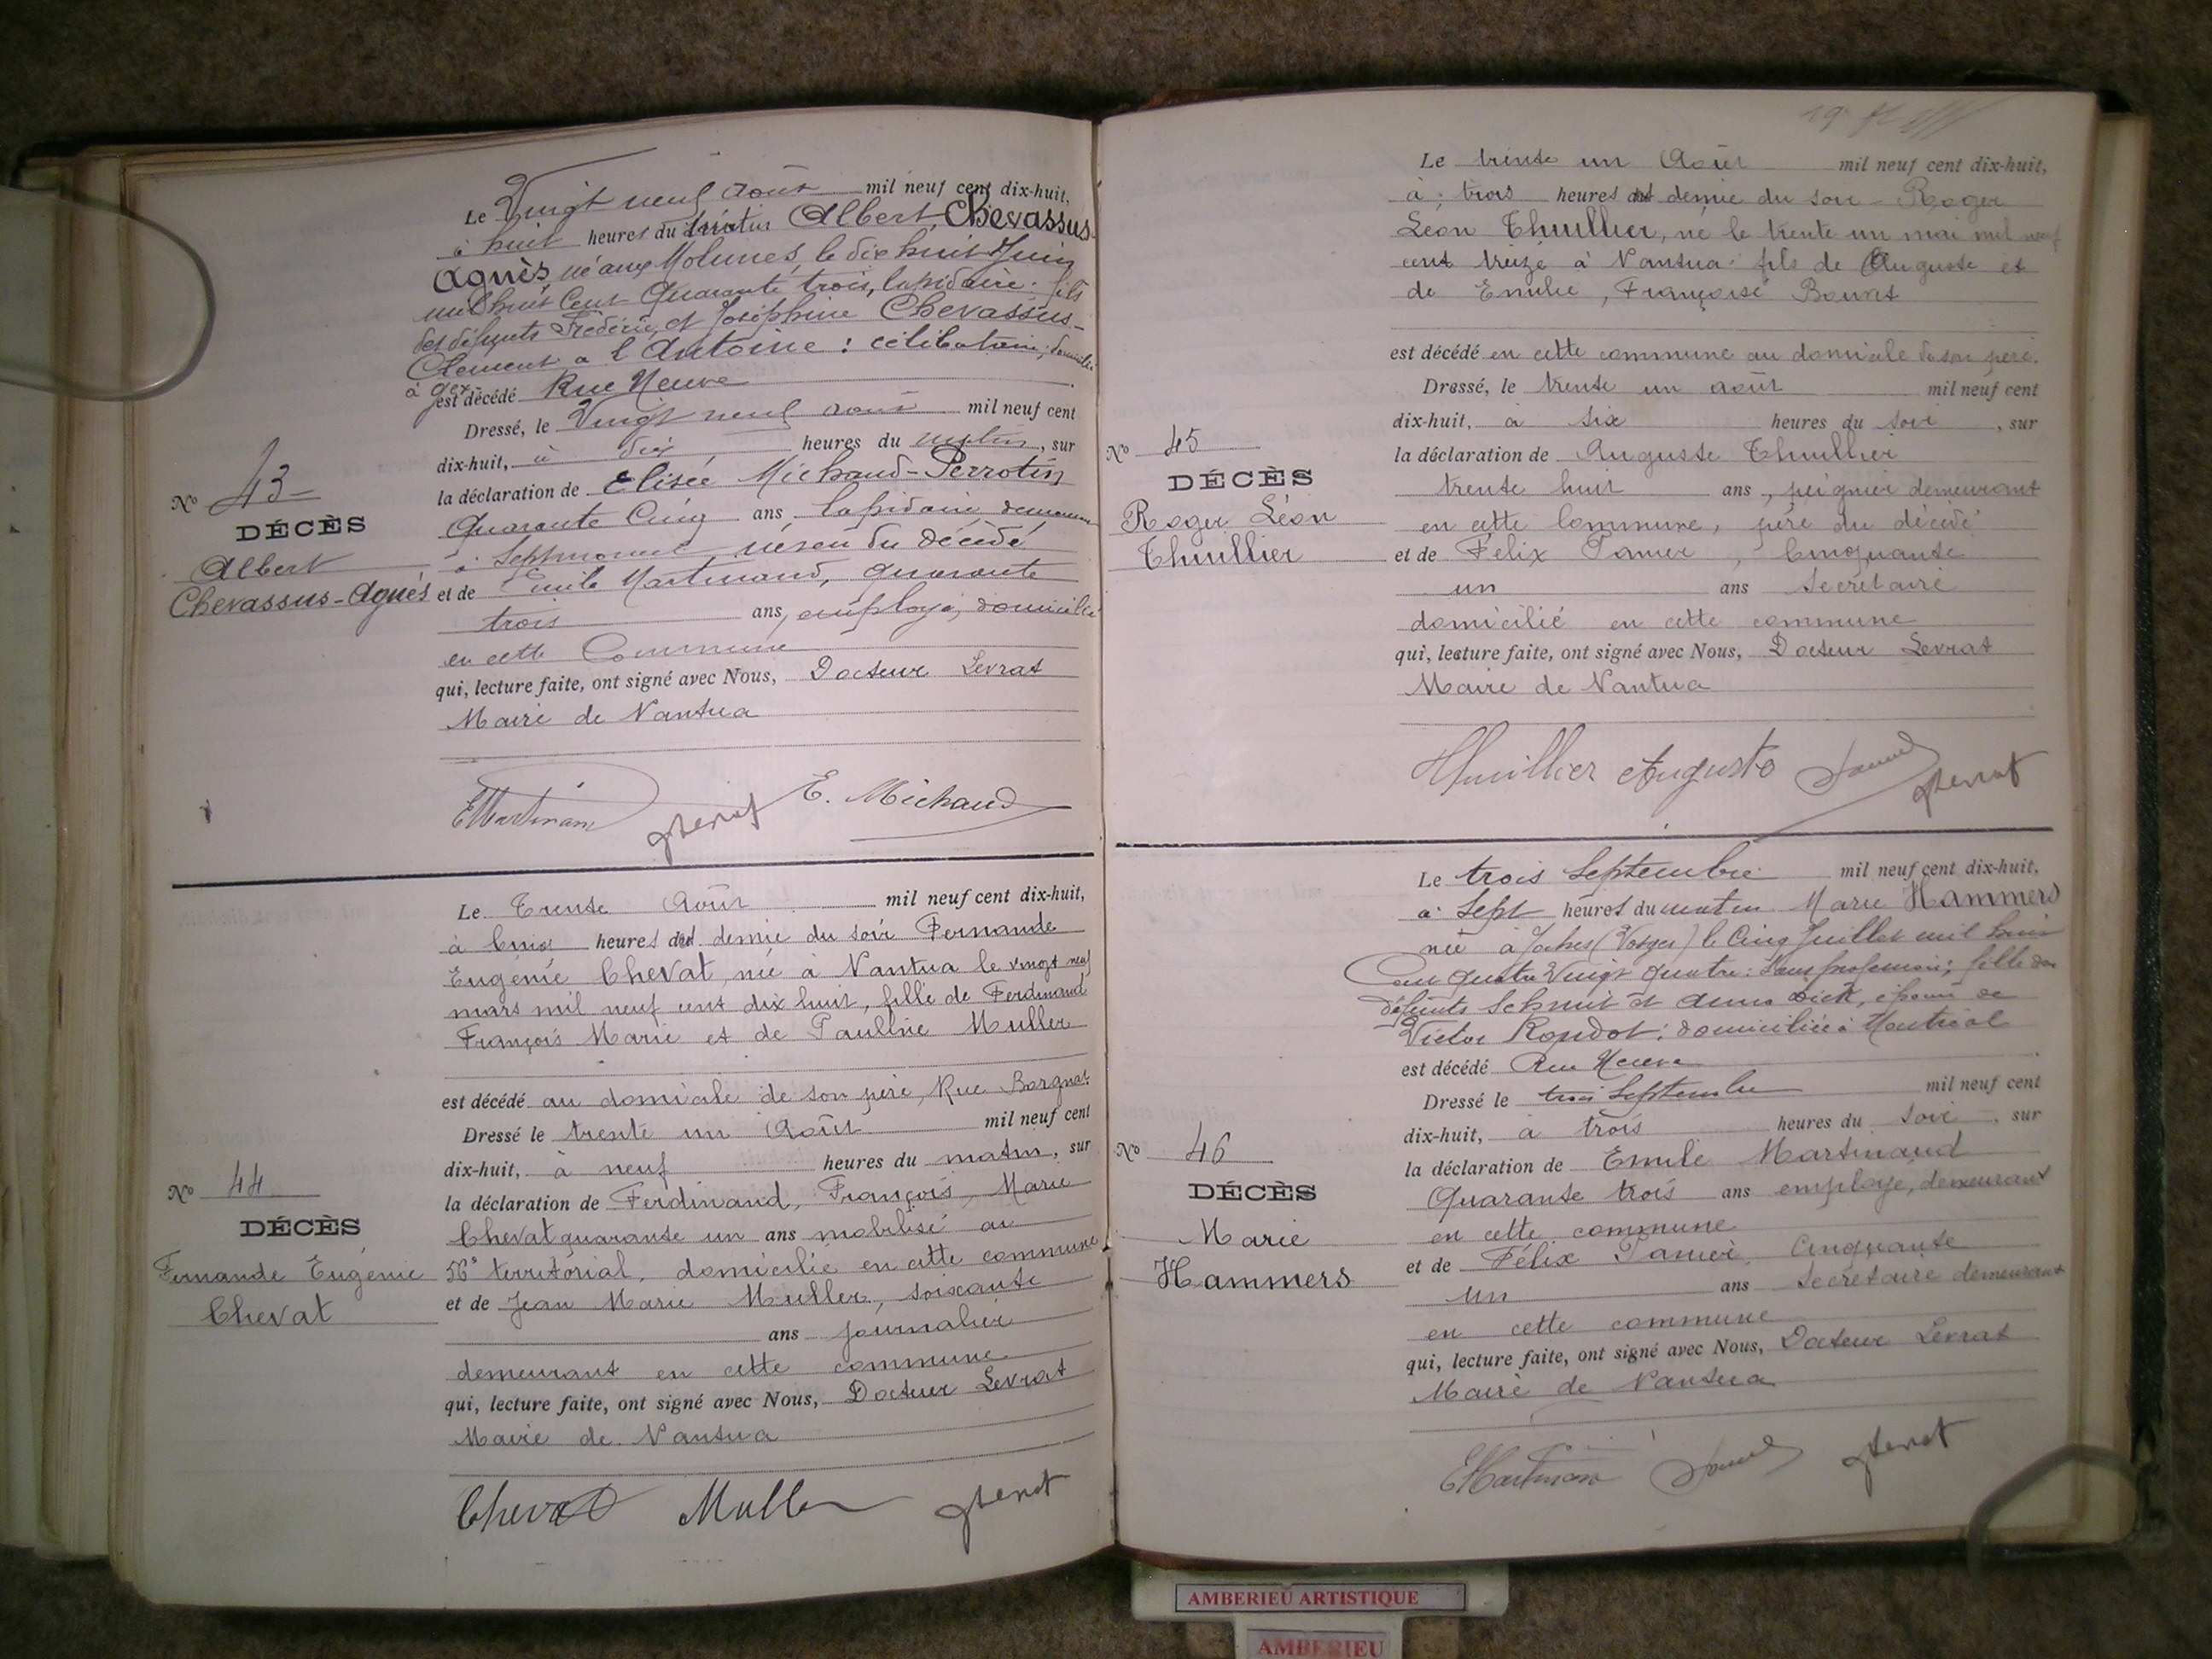 Le Vingt neuf août mil neuf cent dix-huit,
à huit heures du matin Albert Chevassus-
Agnès né aux Molunes, le dix huit Juin
mil huit Cent Quarante trois, lapidaire. fils
des défunts Frédéric et Joséphine Chevassus-
Clement a l'Antoine : célibataire, domicilié
à Gex
est décédé Rue Neuve
Dressé, le Vingt neuf août mil neuf cent
dix-huit, à dix heures du matin, sur
la déclaration de Elisée Michaud-Perrotin
Quarante Cinq ans lapidaire demeurant
à Septmoncel neveu du décédé
et de Emile Martinand, quarante
trois ans, employé, domicilié
en cette Commune
qui, lecture faite, ont signé avec Nous, Docteur Levrat
Maire de Nantua
N° 43
DÉCÈS
Albert
Chevassus-Agnès
EMartinand E. Michaud
Le Trente Août mil neuf cent dix-huit,
à Cinq heures et demie du soir Fernande
Eugénie Chevat, née à Nantua le vingt neuf
mars mil neuf cent dix huit, fille de Ferdinand
François Marie et de Pauline Muller
est décédé au domicile de son père, Rue Borgnat
Dressé le trente un Août mil neuf cent
dix-huit, à neuf heures du matin, sur
la déclaration de Ferdinand, François, Marie
Chevat quarante un ans mobilisé au
56e territorial, domicilié en cette commune
et de Jean Marie Muller, soixante
ans journalier
demeurant en cette commune
qui, lecture faite, ont signé avec Nous, Docteur Levrat
Maire de Nantua
N° 44
DÉCÈS
Fernande Eugénie
Chevat
Chevat Muller
Le trente un Août mil neuf cent dix-huit,
à trois heures et demie du soir Roger
Léon Thuillier, né le trente un mai mil neuf
cent treize à Nantua fils de Auguste et
de Emilie, Françoise Bouvet
est décédé en cette commune au domicile de son père.
Dressé, le trente un août mil neuf cent
dix-huit, à six heures du soir, sur
la déclaration de Auguste Thuillier
trente huit ans, peignier demeurant
en cette Commune, père du décédé
et de Félix Panier, Cinquante
un ans Secrétaire
domicilié en cette commune
qui, lecture faite, ont signé avec Nous, Docteur Levrat
Maire de Nantua
N° 45
DÉCÈS
Roger Léon
Thuillier
Thuillier Auguste
Le trois Septembre mil neuf cent dix-huit,
à Sept heures du matin Marie Hammers
née à (Vosges) le Cinq Juillet mil huit
Cent quatre Vingt quatre : Sans profession; fille des
défunts Schmit et Anna épouse de
Victor Rondot : domiciliée à Montréal
est décédé Rue Neuve
Dressé le trois Septembre mil neuf cent
dix-huit, à trois heures du soir, sur
la déclaration de Emile Martinaud
Quarante trois ans employé, demeurant
en cette commune
et de Félix Panier, Cinquante
un ans Secrétaire demeurant
en cette commune
qui, lecture faite, ont signé avec Nous, Docteur Levrat
Maire de Nantua
N° 46
DÉCÈS
Marie
Hammers
EMartinand
AMBERIEU ARTISTIQUE
AMBERIEU